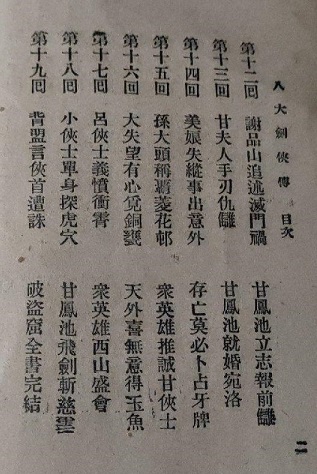 八大劍俠傳　目次
第十二回　謝品山追述滅門禍　甘鳳池立志報前讎
第十三回　甘夫人手刃仇讎　甘鳳池就婚宛洛
第十四回　美娘失縱事出意外　存亡莫必卜占牙牌
第十五回　孫大頭稱霸菱花邨　衆英雄推誠甘俠士
第十六回　大失望有心覓銅甕　天外喜無意得玉魚
第十七回　呂俠士義憤衝霄　衆英雄西山盛會
第十八回　小俠士單身探虎穴　甘鳳池飛劍斬慈雲
第十九回　背盟言俠首遭誅　破盜窟全書完結
二